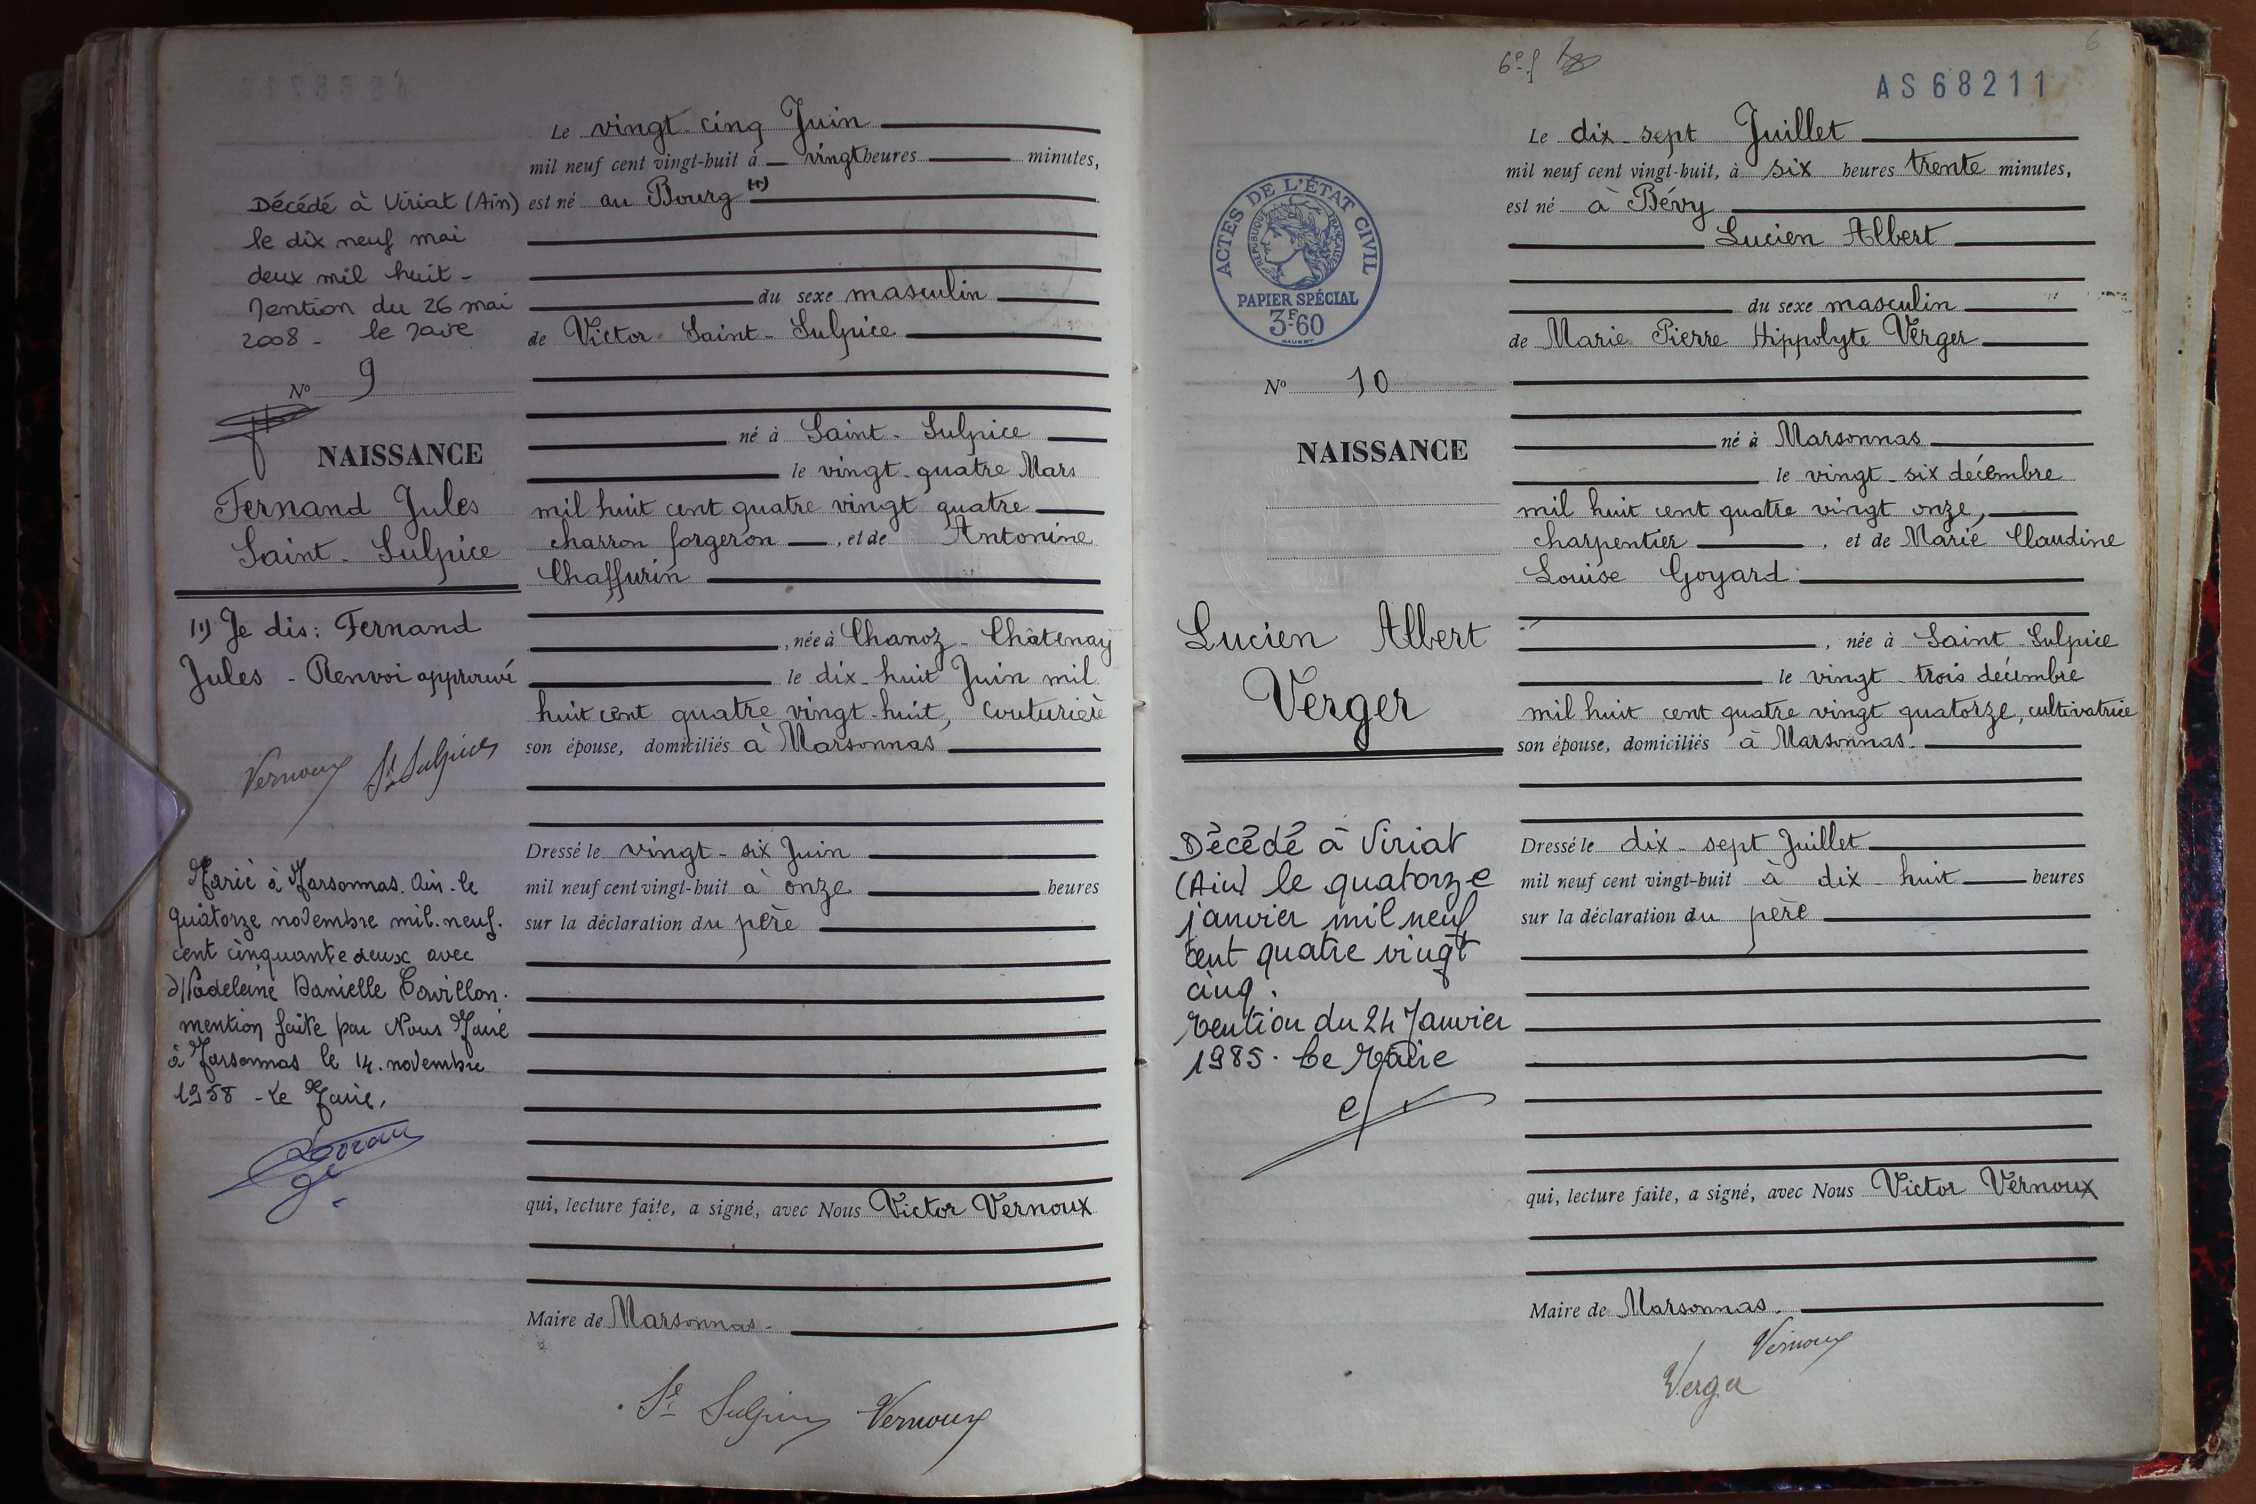 Le vingt-cinq Juin
mil neuf cent vingt-huit à vingt heures minutes,
est né au Bourg (1)
du sexe masculin
de Victor Saint-Sulpice
né à Saint-Sulpice
le vingt-quatre Mars
mil huit cent quatre vingt quatre
charron forgeron, et de Antonine
Chaffurin
, née à Chanoz-Châtenay
le dix-huit Juin mil
huit cent quatre vingt-huit, couturière
son épouse, domiciliés à Marsonnas
Dressé le vingt-six Juin
mil neuf cent vingt-huit à onze heures
sur la déclaration du père
qui, lecture faite, a signé, avec Nous Victor Vernoux
Maire de Marsonnas.
St Sulpice Vernoux
Décédé à Viriat (Ain)
le dix neuf mai
deux mil huit -
Mention du 26 mai
2008 - le Maire
No 9
NAISSANCE
Fernand Jules
Saint-Sulpice
(1) Je dis: Fernand
Jules - Renvoi approuvé
Vernoux St Sulpice
Marié à Marsonnas. Ain. le
quatorze novembre mil. neuf.
cent cinquante deux avec
Madeleine Danielle
mention faite par Nous Maire
à Marsonnas le 14. novembre
1958 - Le Maire,
6e f
6
AS68211
Le dix-sept Juillet
mil neuf cent vingt-huit, à six heures trente minutes,
est né à Bévy
Lucien Albert
du sexe masculin
de Marie Pierre Hippolyte Verger
né à Marsonnas
le vingt-six décembre
mil huit cent quatre vingt onze,
charpentier, et de Marie Claudine
Louise Goyard
, née à Saint-Sulpice
le vingt-trois décembre
mil huit cent quatre vingt quatorze, cultivatrice
son épouse, domiciliés à Marsonnas.
Dressé le dix-sept Juillet
mil neuf cent vingt-huit à dix-huit heures
sur la déclaration du père
qui, lecture faite, a signé, avec Nous Victor Vernoux
Maire de Marsonnas.
Vernoux
Verger
ACTES DE L'ÉTAT CIVIL
RÉPUBLIQUE FRANÇAISE
PAPIER SPÉCIAL
3F60
No 10
NAISSANCE
Lucien Albert
Verger
Décédé à Viriat
(Ain) le quatorze
janvier mil neuf
cent quatre vingt
cinq.
Mention du 24 Janvier
1985. Le Maire